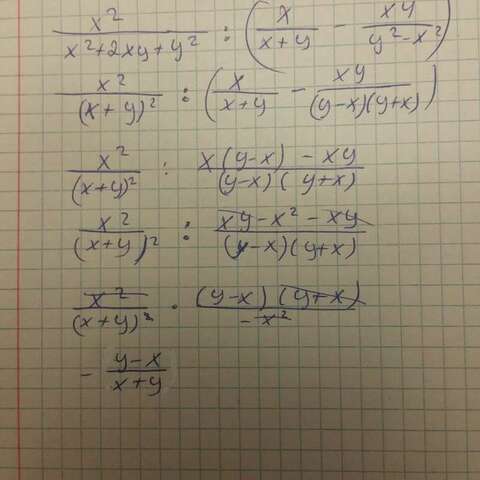 x²/(x²+2xy+y²) : (x/(x+y) - xy/(y²-x²))
x²/(x+y)² : (x/(x+y) - xy/((y-x)(y+x)))
x²/(x+y)² : (x(y-x) - xy)/((y-x)(y+x))
x²/(x+y)² : (xy-x²-xy)/((y-x)(y+x))
x²/(x+y)² · ((y-x)(y+x))/(-x²)
- (y-x)/(x+y)